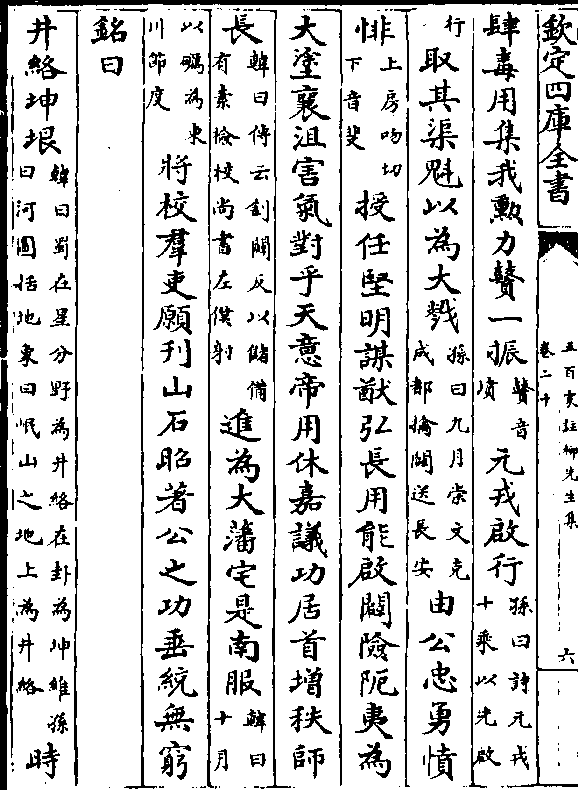 欽定四庫全書
五百家註柳先生集
卷二十
六
肆毒用集我勲力贊一振贊音贊元戎啟行孫曰詩元戎十乘以先啟
行取其渠魁以為大戮孫曰九月崇文克成都擒闢送長安由公忠勇憤
悱上房吻切下音斐授任堅明謀猷弘長用能啟闢險阨夷為
大塗襄沮害氣對乎天意帝用休嘉議功居首增秩師
長韓曰傳云劉闢反以儲備有素檢校尚書左僕射進為大藩宅是南服韓曰十月
以礪為東川節度將校羣吏願刊山石昭著公之功垂統無窮
銘曰
井絡坤垠韓曰蜀在星分野為井絡在卦為坤維孫曰河圖括地象曰岷山之地上為井絡時